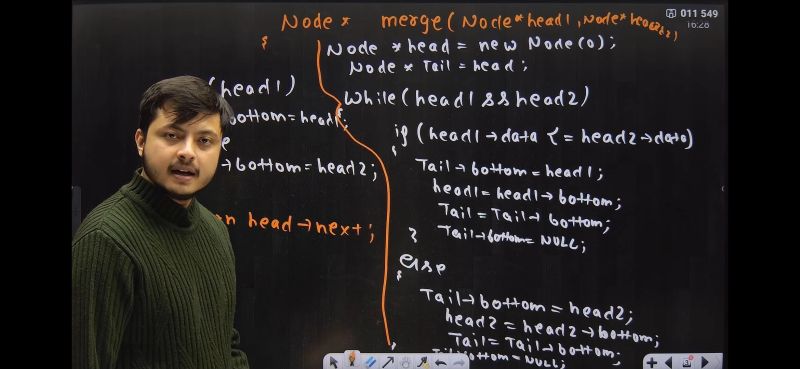 011 549
16:28
Node * merge(Node*head1, Node*head2)
{
Node *head = new Node(0);
Node * Tail = head;
while(head1 && head2)
{
if (head1→data <= head2→data)
{
Tail→bottom = head1;
head1 = head1→bottom;
Tail = Tail→bottom;
Tail→bottom = NULL;
}
else
{
Tail→bottom = head2;
head2 = head2→bottom;
Tail = Tail→bottom;
bottom = NULL;
(head1)
bottom = head1;
→bottom = head2;
head→next;